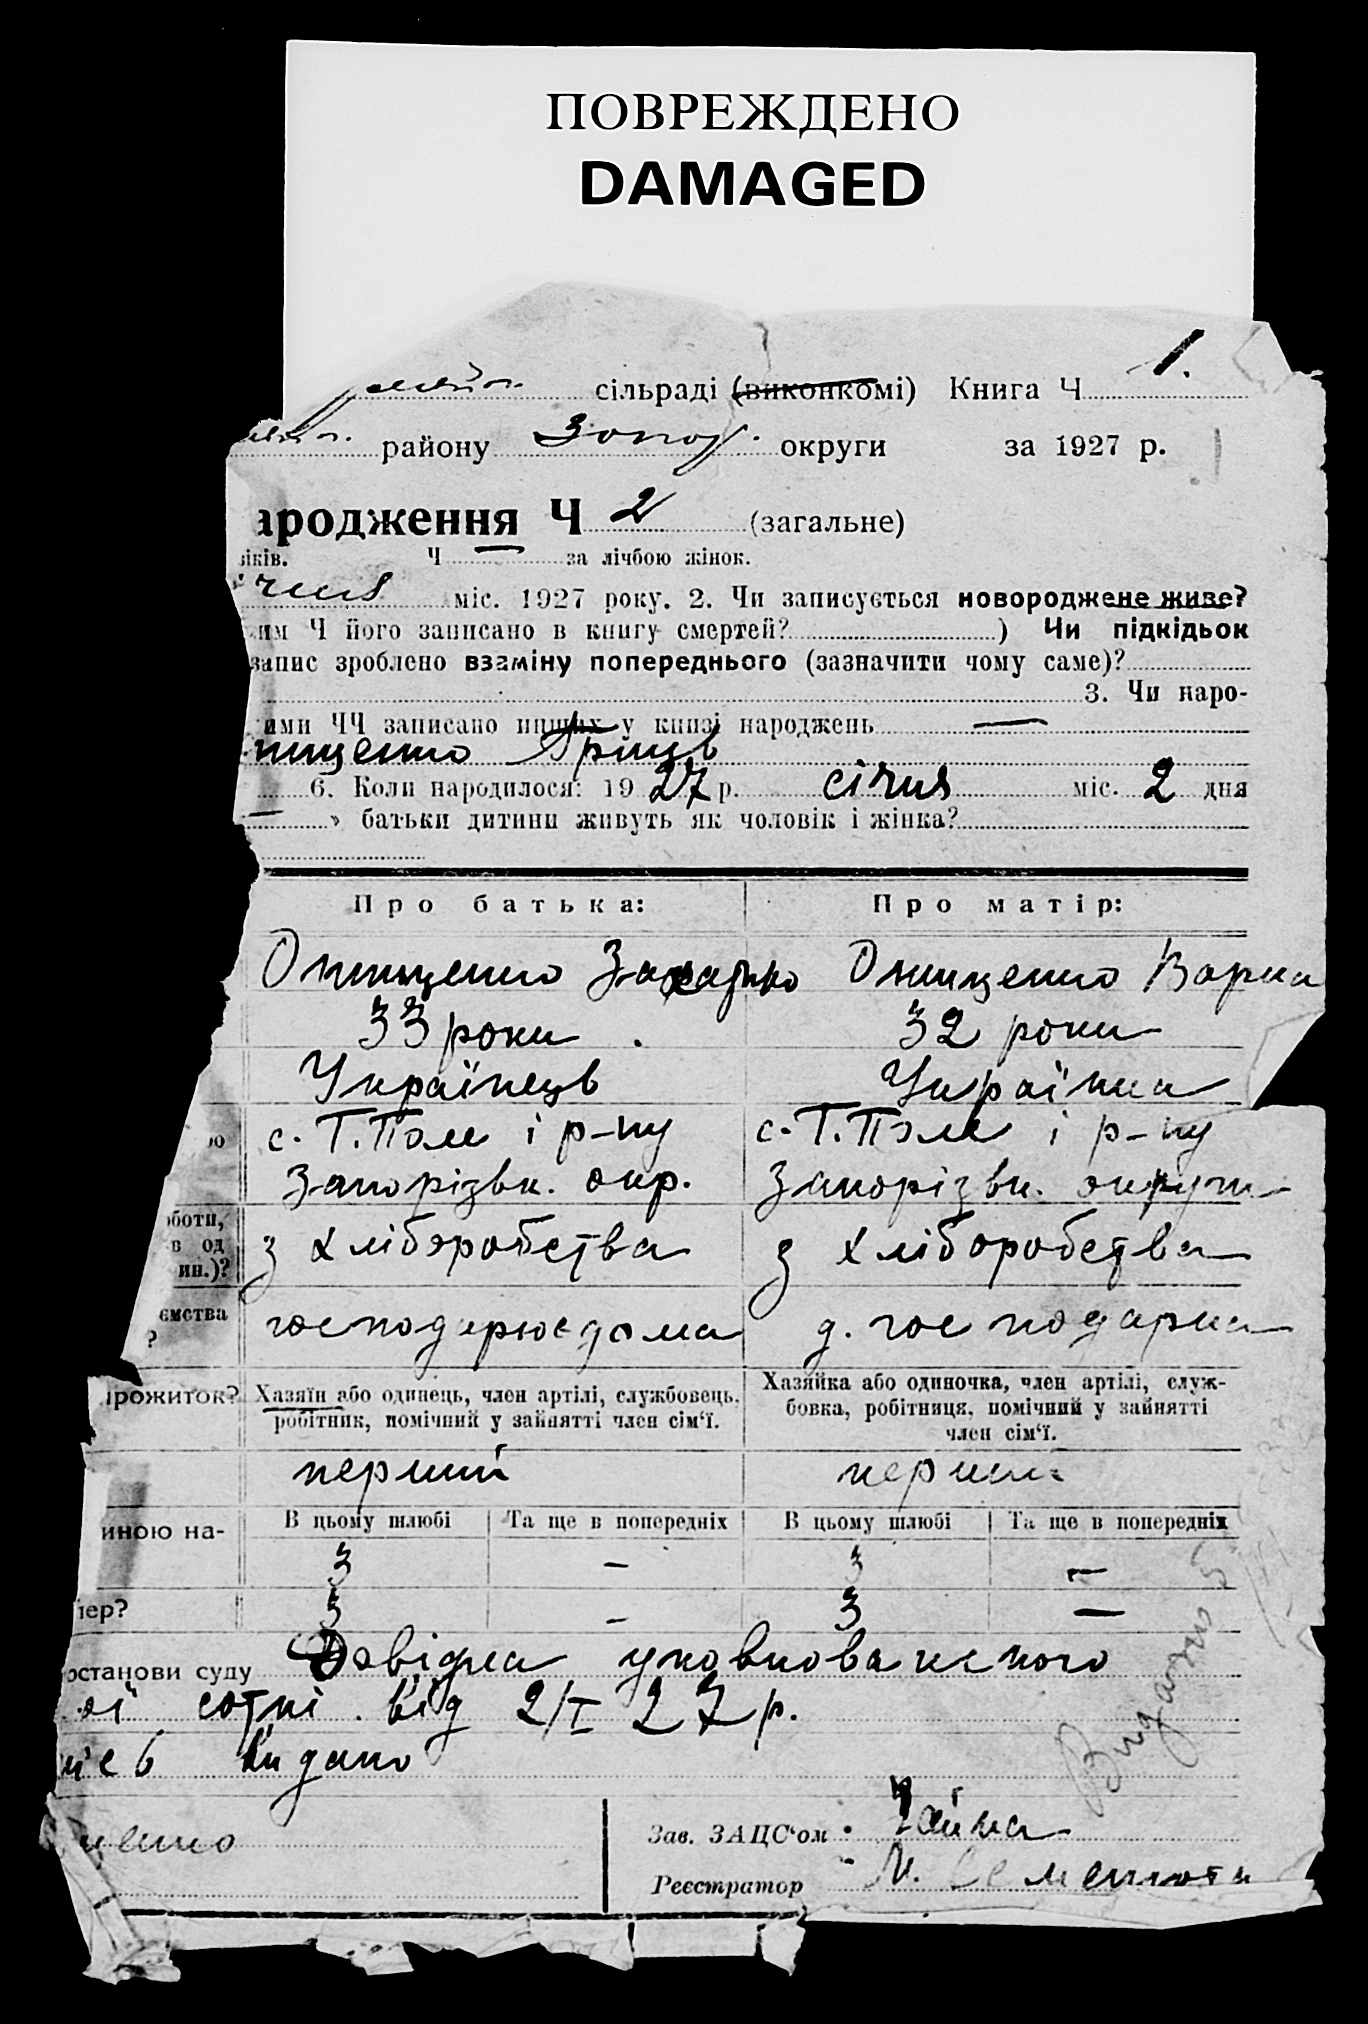 ПОВРЕЖДЕНО
DAMAGED
сільраді (виконкомі) Книга Ч 1.
району Запор. округи за 1927 р.
ародження Ч 2 (загальне)
ків. Ч — за лічбою жінок.
ічня міс. 1927 року. 2. Чи записується новороджене живе?
им Ч його записано в книгу смертей? ) Чи підкідьок
запис зроблено взаміну попереднього (зазначити чому саме)?
3. Чи наро-
ими ЧЧ записано инших у книзі народжень —
нищенко Гриць
6. Коли народилося: 1927 р. січня міс. 2 дня
— » батьки дитини живуть як чоловік і жінка?
Про батька: Про матір:
Онищенко Захарко Онищенко Варка
33 роки. 32 роки
Українець Українка
с. Т. Поле і р-ну с. Т. Поле і р-ну
ро Запорізьк. окр. Запорізьк. округи
оботи,
в од з хліборобства з хліборобства
ин.)?
ємства господарює дома д. господарка
?
прожиток? Хазяїн або одинець, член артілі, службовець, робітник, помічний у зайнятті член сім‘ї. Хазяйка або одиночка, член артілі, служ-
бовка, робітниця, помічний у зайнятті
член сім‘ї.
перший перший
иною на- В цьому шлюбі Та ще в попередніх В цьому шлюбі Та ще в попередніх
3 – 3 –
пер? 3 – 3 –
останови суду Довідка уповноваженого
ої сотні від 2/I 27 р.
Видано
Видано
Зав. ЗАЦС‘ом Чайка
енко
Реєстратор М.